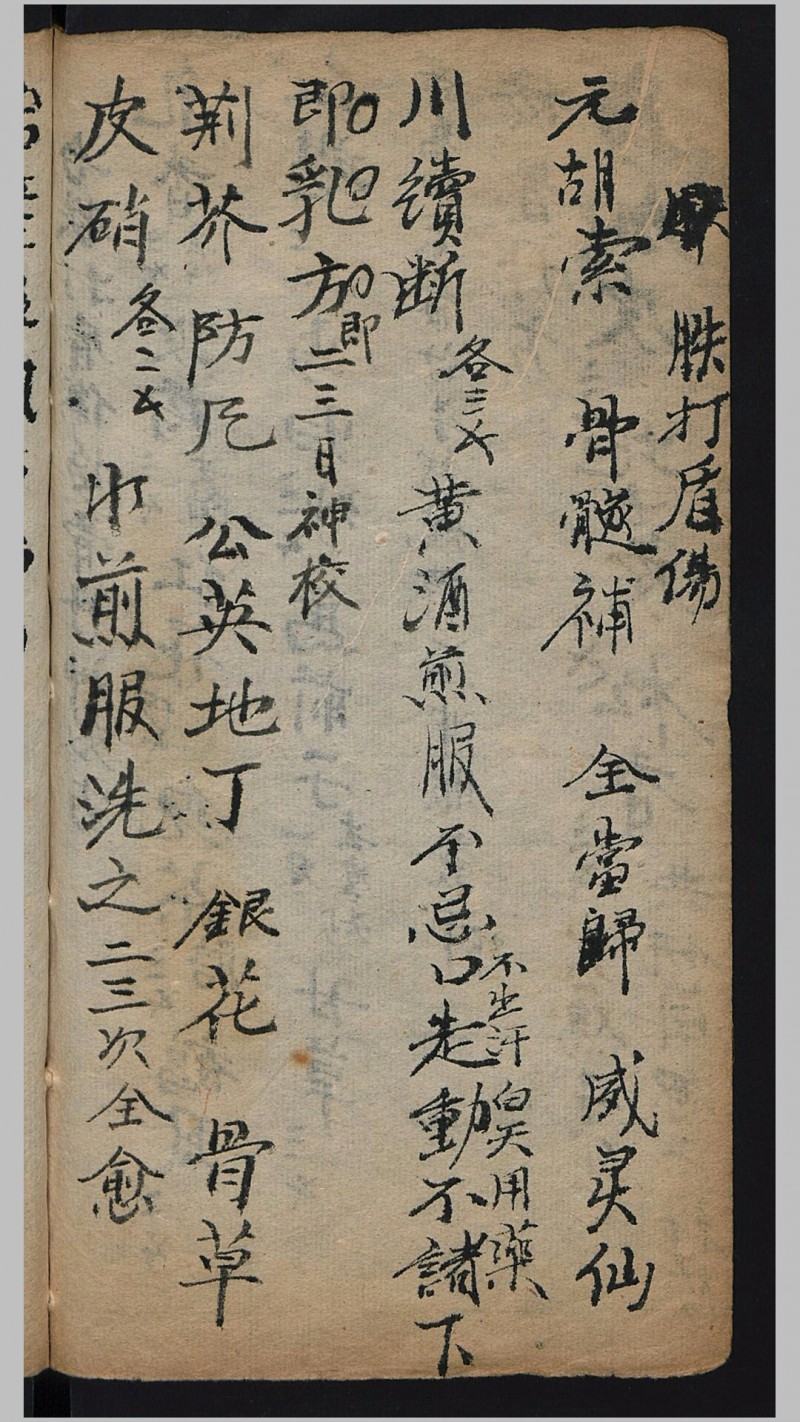 胅打盾傷
元胡索 骨髓補 全當歸 威灵仙
川續斷 各三戈 黄酒煎服 不忌口 走動不諸下
不出汗 白天用藥
即乳方 即二三日神校
荊芥 防风 公英 地丁 銀花 骨草
皮硝 各二戈 水煎服洗之二三次全愈